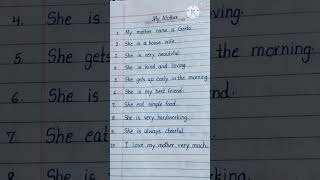 My Mother
1. My mother name is Geeta.
2. She is a house wife.
3. She is very beautiful.
4. She is kind and loving.
5. She gets up early in the morning.
6. She is my best friend.
7. She eat simple food.
8. She is very hardworking.
9. She is always cheerful.
10. I love my mother very much.
4. She is
She gets
6. She is
7. She eat
ng.
the morning.